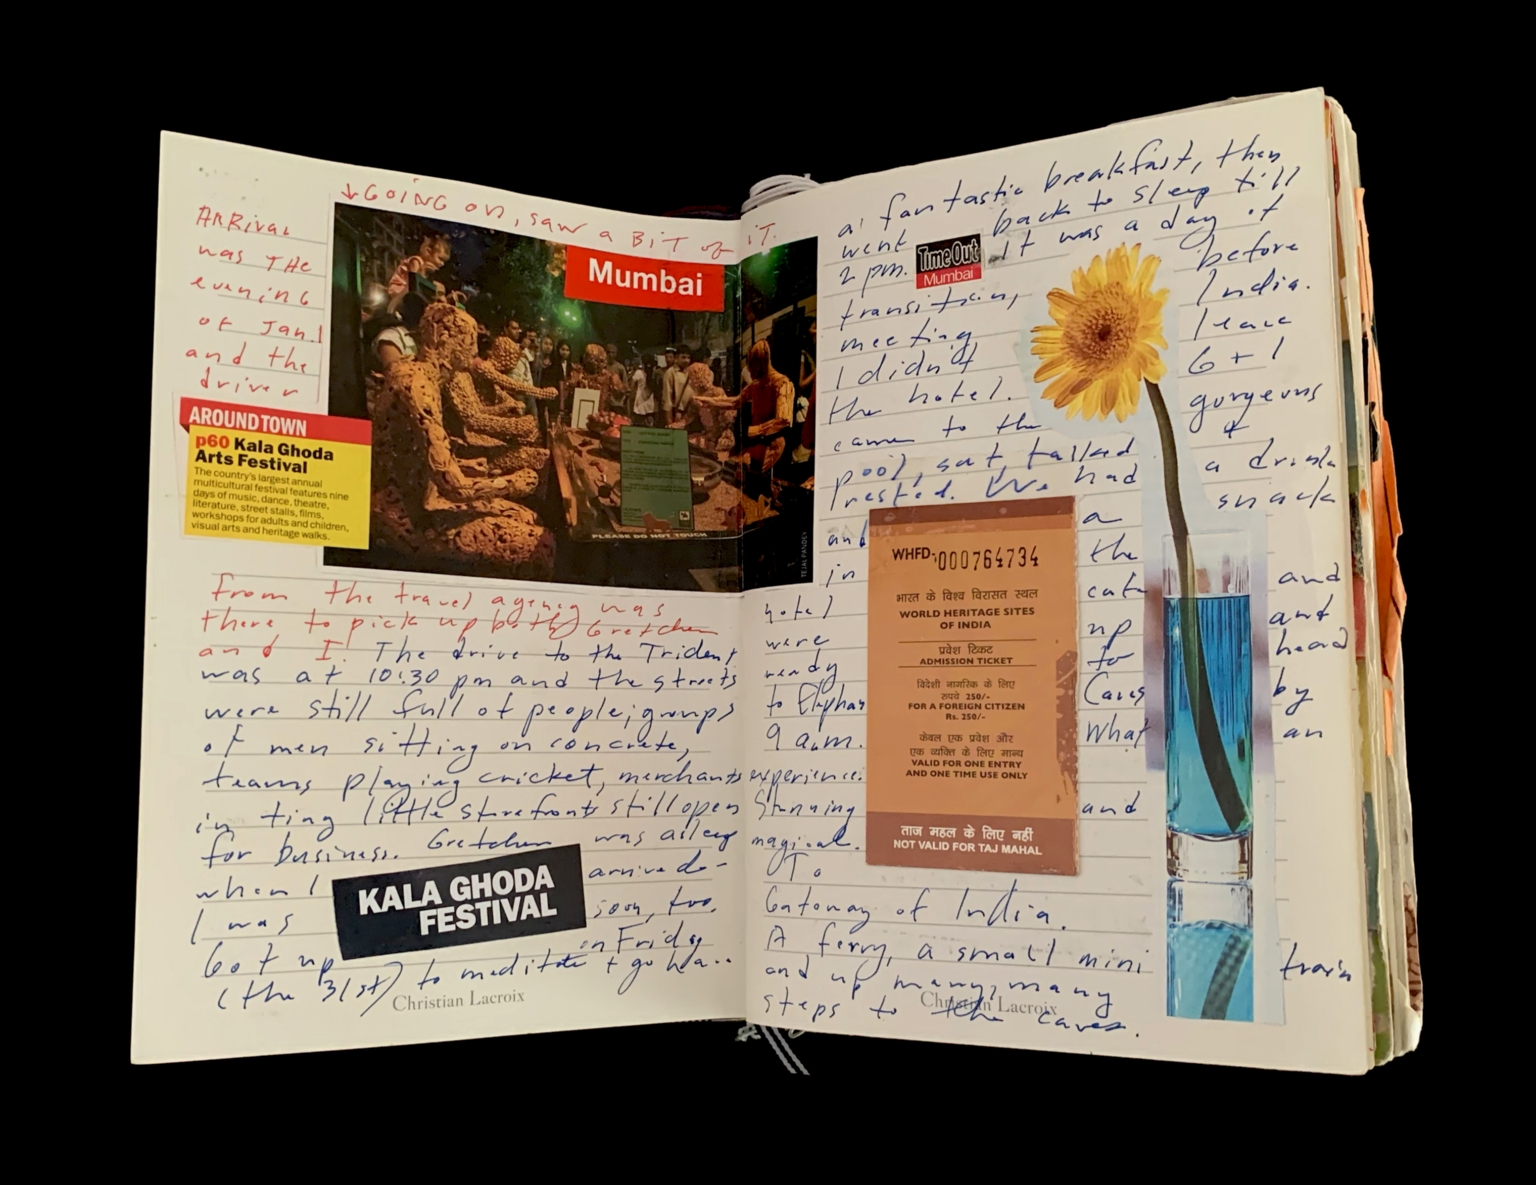 ↓GOING ON, SAW A BIT OF IT.
ARRIVAL
was THE
evening
of Jan 1
and the
driver
Mumbai
AROUND TOWN
p60 Kala Ghoda
Arts Festival
The country's largest annual
multicultural festival features nine
days of music, dance, theatre,
literature, street stalls, films,
workshops for adults and children,
visual arts and heritage walks.
PLEASE DO NOT TOUCH
TEJAL PANDEY
from the travel agency was
there to pick up both Gretchen
and I. The drive to the Trident
was at 10:30 pm and the streets
were still full of people; groups
of men sitting on concrete,
teams playing cricket, merchants
in tiny little storefronts still open
for business. Gretchen was asleep
when I arrived -
I was soon, too.
KALA GHODA
FESTIVAL
Got up on Friday
(the 31st) to meditate + go have
Christian Lacroix
a fantastic breakfast, then
went back to sleep till
2 pm. It was a day of
Time Out
Mumbai
transition, before
meeting India.
I didn't leave
the hotel. 6 + 1
came to the gorgeous
pool, sat, talked &
rested. We had a drink
and a snack
in the
hotel cafe and
were up and
ready to head
to Elephan Caves by
9 a.m. What an
experience!
Stunning and
magical.
To
Gateway of India.
A ferry, a small mini train
and up many, many
steps to the caves.
WHFD-000764734
भारत के विश्व विरासत स्थल
WORLD HERITAGE SITES
OF INDIA
प्रवेश टिकट
ADMISSION TICKET
विदेशी नागरिक के लिए
रुपये 250/-
FOR A FOREIGN CITIZEN
Rs. 250/-
केवल एक प्रवेश और
एक व्यक्ति के लिए मान्य
VALID FOR ONE ENTRY
AND ONE TIME USE ONLY
ताज महल के लिए नहीं
NOT VALID FOR TAJ MAHAL
Christian Lacroix